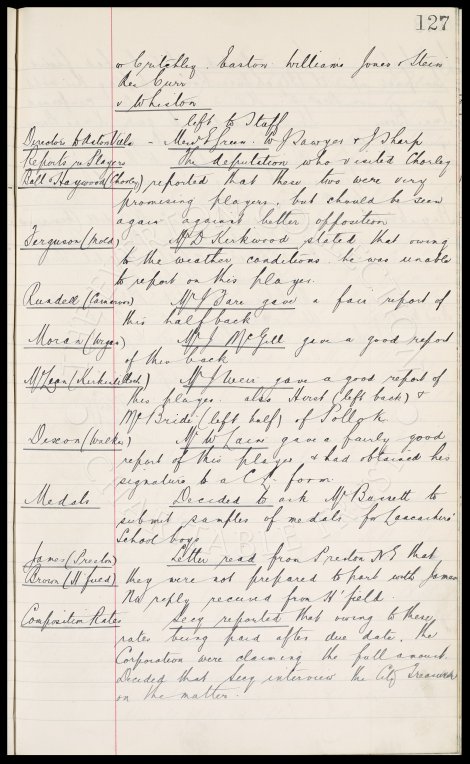 127
v Critchley. Easton. Williams Jones & Stein
Res Curr
v Whiston
- left to Staff
Directors to Aston Villa - Messrs E Green. W J Sawyer & J Sharp
Reports re Players The deputation who visited Chorley
Ball & Haywood (Chorley) reported that these two were very
promising players, but should be seen
again against better opposition
Ferguson (Mold) Mr D Kirkwood stated that owing
to the weather conditions he was unable
to report on this player.
Rundell (Camerons) Mr J Bare gave a fair report of
this halfback
Moran (Wigan) Mr J McGill gave a good report
of this back
McLean (Kirkintilloch) Mr J Weir gave a good report of
this player. also Hurst (left back) &
McBride (left half) of Pollok
Dixon (Walker) Mr W Caine gave a fairly good
report of this player & had obtained his
signature to a C.L. form
Medals Decided to ask Mr Barrett to
submit samples of medals for Lancashire
School boys
James (Preston) Letter read from Preston N E that
Brown (H'field) they were not prepared to part with James
No reply received from H'field.
Composition Rates Secy reported that owing to these
rates being paid after due date, the
Corporation were claiming the full amount.
Decided that Secy interview the City Treasurer
on the matter.